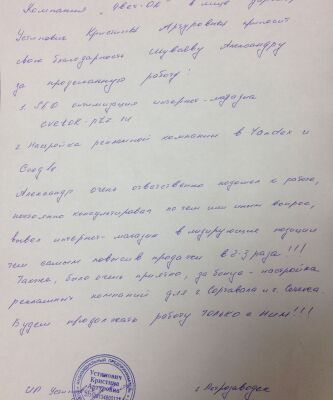 Компания "Цвет-Ок" в лице
Устинович Кристины Артуровны приносит
свою благодарность Шуваеву Александру
за проделанную работу:
1. SEO оптимизация интернет-магазина
cvetok-ptz.ru
2. Настройка рекламной компании в Yandex и
Google
Александр очень ответственно подошел к работе,
консультировал по тем или иным вопрос,
вывел интернет-магазин в лидирующие позиции
тем самым повысив продажи в 2-3 раза!!!
Также, было очень приятно, за бонус - настройка
рекламных компаний для г. Сортавала и г. Сегежа.
Будем продолжать работу только с ним!!!
Устинович
Кристина
Артуровна
ИП Устинович
г. Петрозаводск